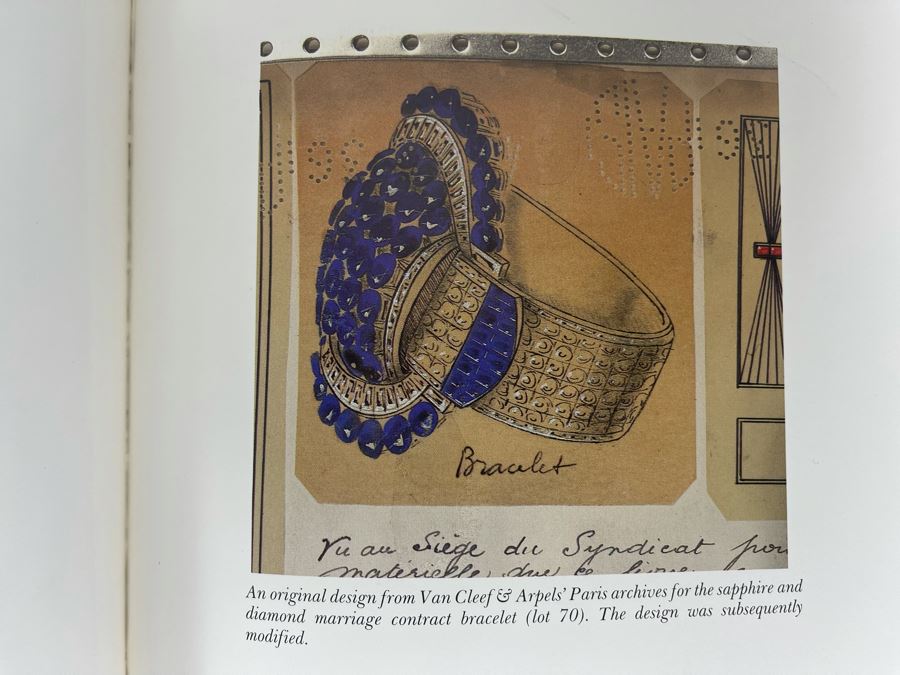 Bracelet
Vu au Siège du Syndicat pour
matérielle que ce livre
An original design from Van Cleef & Arpels' Paris archives for the sapphire and
diamond marriage contract bracelet (lot 70). The design was subsequently
modified.